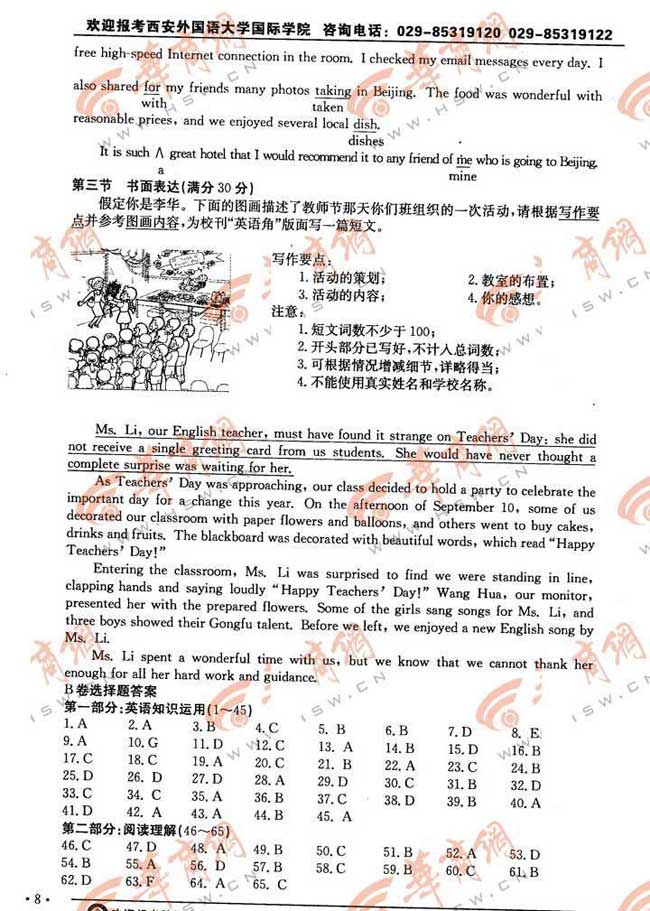 欢迎报考西安外国语大学国际学院 咨询电话：029-85319120 029-85319122
free high-speed Internet connection in the room. I checked my email messages every day. I
also shared for my friends many photos taking in Beijing. The food was wonderful with
with taken
reasonable prices, and we enjoyed several local dish.
dishes
It is such ∧ great hotel that I would recommend it to any friend of me who is going to Beijing.
a mine
第三节 书面表达(满分30分)
假定你是李华。下面的图画描述了教师节那天你们班组织的一次活动,请根据写作要
点并参考图画内容,为校刊“英语角”版面写一篇短文。
写作要点:
1.活动的策划; 2.教室的布置;
3.活动的内容; 4.你的感想。
注意:
1.短文词数不少于100;
2.开头部分已写好,不计入总词数;
3.可根据情况增减细节,详略得当;
4.不能使用真实姓名和学校名称。
Ms. Li, our English teacher, must have found it strange on Teachers' Day: she did
not receive a single greeting card from us students. She would have never thought a
complete surprise was waiting for her.
As Teachers' Day was approaching, our class decided to hold a party to celebrate the
important day for a change this year. On the afternoon of September 10, some of us
decorated our classroom with paper flowers and balloons, and others went to buy cakes,
drinks and fruits. The blackboard was decorated with beautiful words, which read “Happy
Teachers' Day!”
Entering the classroom, Ms. Li was surprised to find we were standing in line,
clapping hands and saying loudly “Happy Teachers' Day!” Wang Hua, our monitor,
presented her with the prepared flowers. Some of the girls sang songs for Ms. Li, and
three boys showed their Gongfu talent. Before we left, we enjoyed a new English song by
Ms. Li.
Ms. Li spent a wonderful time with us, but we know that we cannot thank her
enough for all her hard work and guidance.
B卷选择题答案
第一部分:英语知识运用(1～45)
1. A 2. A 3. B 4. C 5. B 6. B 7. D 8. E
9. A 10. G 11. D 12. C 13. A 14. B 15. D 16. B
17. C 18. C 19. A 20. C 21. B 22. A 23. C 24. B
25. D 26. D 27. D 28. A 29. D 30. C 31. B 32. D
33. C 34. C 35. A 36. B 37. C 38. D 39. B 40. A
41. D 42. A 43. A 44. B 45. A
第二部分:阅读理解(46～65)
46. C 47. D 48. A 49. B 50. C 51. B 52. A 53. D
54. B 55. A 56. D 57. B 58. C 59. B 60. C 61. B
62. D 63. F 64. A 65. C
·8·